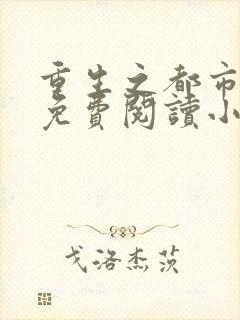 重生之都市
免費閱讀小
戈洛杰茨